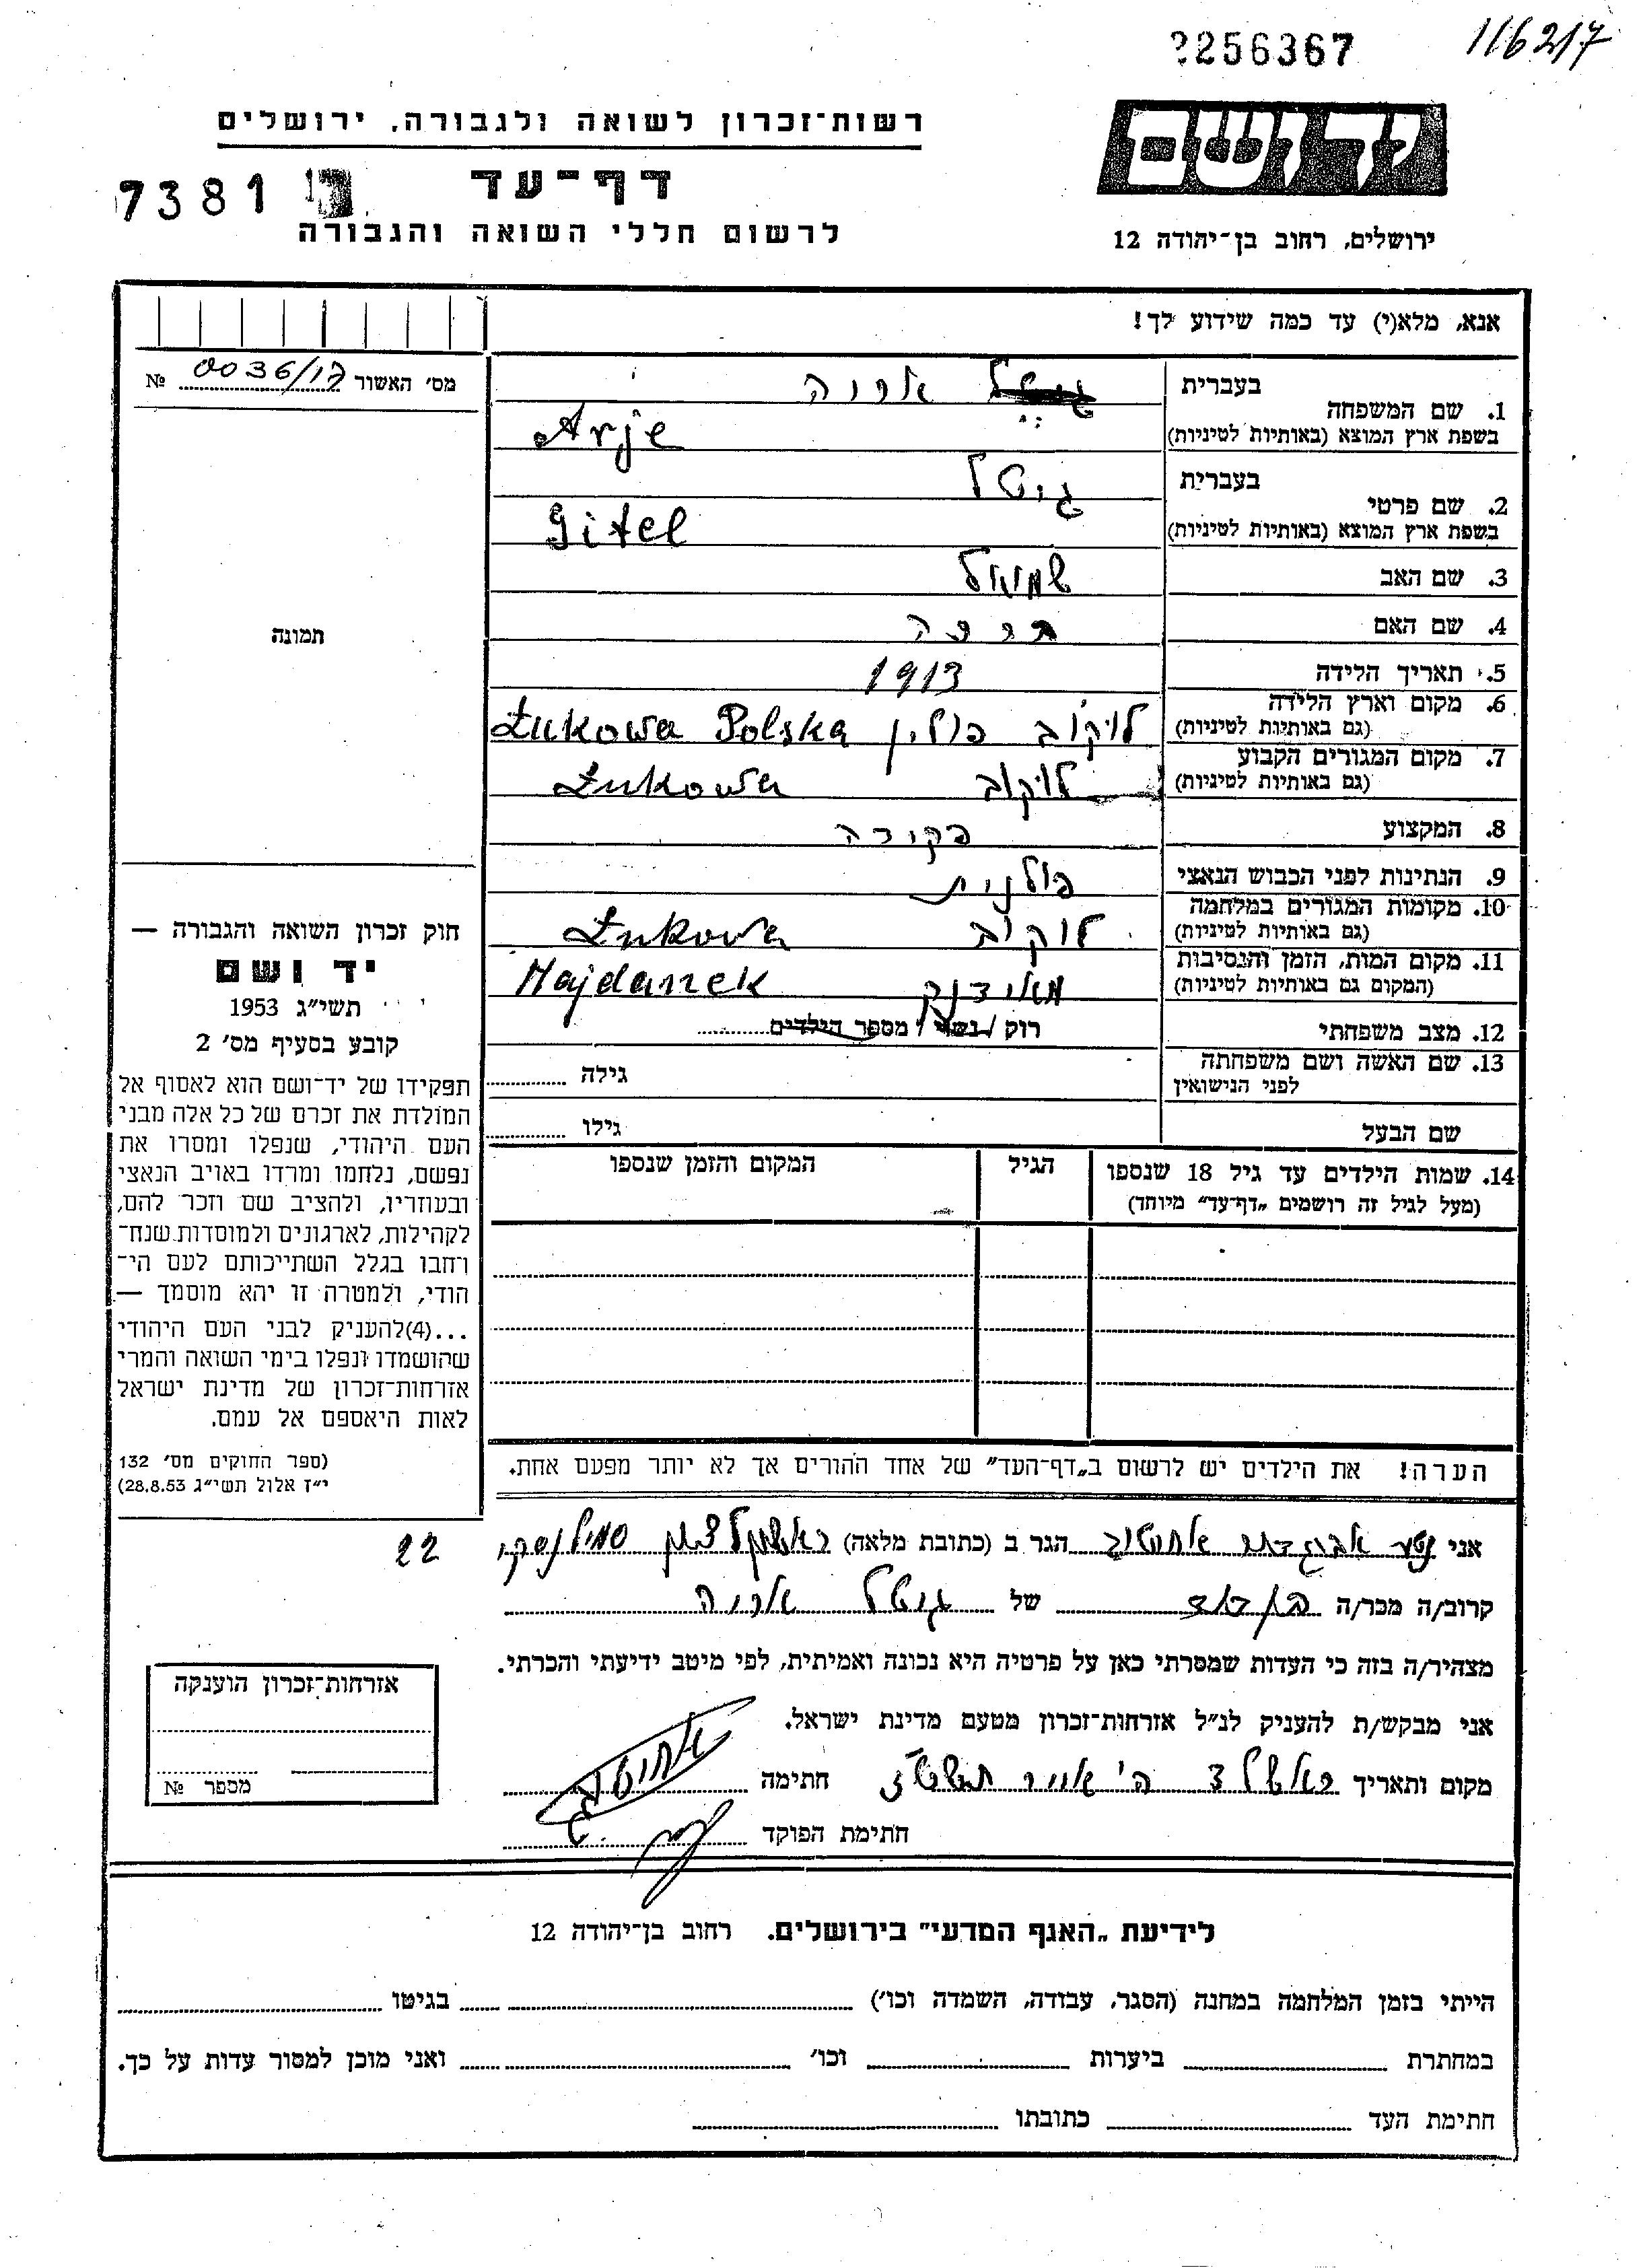 116217
2256367
ידושם
רשות־זכרון לשואה ולגבורה, ירושלים
דף־עד
7381
לרשום חללי השואה והגבורה
ירושלים, רחוב בן־יהודה 12
אנא, מלא(י) עד כמה שידוע לך!
מס׳ האשור 0036/17 №
1. שם המשפחה
בעברית גיטל אריה
בשפת ארץ המוצא (באותיות לטיניות) Arje
2. שם פרטי
בעברית גיטל
בשפת ארץ המוצא (באותיות לטיניות) Gitel
3. שם האב שמואל
4. שם האם
5. תאריך הלידה 1913
6. מקום וארץ הלידה
(גם באותיות לטיניות) לוקוב פולין Łukowa Polska
7. מקום המגורים הקבוע
(גם באותיות לטיניות) לוקוב Łukowa
8. המקצוע פקידה
9. הנתינות לפני הכבוש הנאצי פולנית
10. מקומות המגורים במלחמה
(גם באותיות לטיניות) לוקוב Łukowa
11. מקום המות, הזמן והנסיבות
(המקום גם באותיות לטיניות) מאידנק Majdanek
12. מצב משפחתי רוק / נשוי / מספר הילדים
13. שם האשה ושם משפחתה
לפני הנישואין גילה
שם הבעל גילו
14. שמות הילדים עד גיל 18 שנספו הגיל המקום והזמן שנספו
(מעל לגיל זה רושמים „דף־עד" מיוחד)
תמונה
חוק זכרון השואה והגבורה —
יד ושם
תשי״ג 1953
קובע בסעיף מס׳ 2
תפקידו של יד־ושם הוא לאסוף אל
המולדת את זכרם של כל אלה מבני
העם היהודי, שנפלו ומסרו את
נפשם, נלחמו ומרדו באויב הנאצי
ובעוזריו, ולהציב שם וזכר להם,
לקהילות, לארגונים ולמוסדות שנח־
רחבו בגלל השתייכותם לעם הי־
הודי, ולמטרה זו יהא מוסמך —
...(4)להעניק לבני העם היהודי
שהושמדו ונפלו בימי השואה והמרי
אזרחות־זכרון של מדינת ישראל
לאות היאספם אל עמם.
(ספר החוקים מס׳ 132
י״ז אלול תשי״ג 28.8.53)
הערה! את הילדים יש לרשום ב„דף־העד" של אחד ההורים אך לא יותר מפעם אחת.
אני נטע הגר ב (כתובת מלאה) סמילנסקי 22
קרוב/ה מכר/ה בן דוד של גיטל אריה
מצהיר/ה בזה כי העדות שמסרתי כאן על פרטיה היא נכונה ואמיתית, לפי מיטב ידיעתי והכרתי.
אני מבקש/ת להעניק לנ״ל אזרחות־זכרון מטעם מדינת ישראל.
מקום ותאריך ראשל״צ ה׳ אייר תשט״ז חתימה
חתימת הפוקד
אזרחות־זכרון הוענקה
מספר №
לידיעת „האגף המדעי" בירושלים. רחוב בן־יהודה 12
הייתי בזמן המלחמה במחנה (הסגר, עבודה, השמדה וכו׳) בגיטו
במחתרת ביערות וכו׳ ואני מוכן למסור עדות על כך.
חתימת העד כתובתו